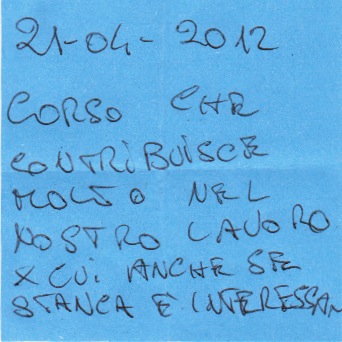 21-04-2012
CORSO CHE
CONTRIBUISCE
MOLTO NEL
NOSTRO LAVORO
X CUI ANCHE SE
STANCA È INTERESSAN